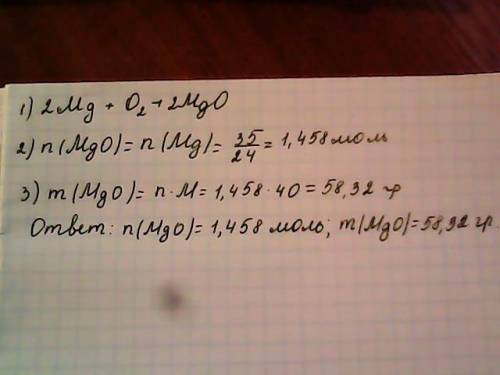 1) 2Mg + O₂ → 2MgO
2) n(MgO) = n(Mg) = 35/24 = 1,458 моль
3) m(MgO) = n·M = 1,458·40 = 58,32 гр
Ответ: n(MgO) = 1,458 моль; m(MgO) = 58,32 гр.